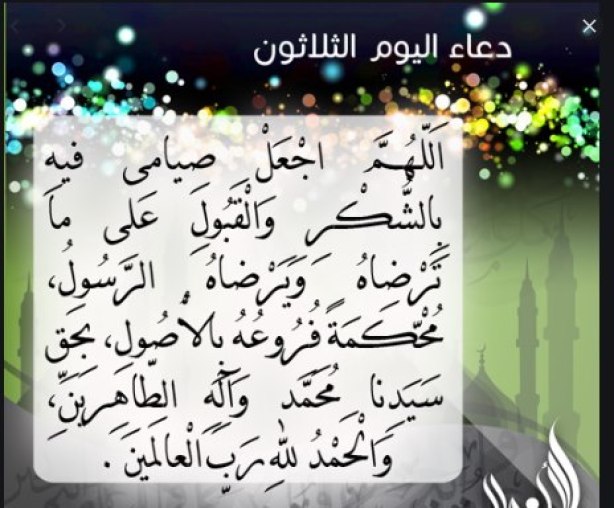 دعاء اليوم الثلاثون
اَللّهُمَّ اجْعَلْ صيامى فيه
بِالشُّكْرِ وَالْقَبُولِ عَلى ما
تَرْضاهُ وَيَرْضاهُ الرَّسُولُ،
مُحْكَمَةً فُرُوعُهُ بِالاُصُولِ، بِحَقِّ
سَيِّدِنا مُحَمَّد وَآلِهِ الطّاهِرينَ،
وَالْحَمْدُ للهِ رَبِّ الْعالَمينَ .